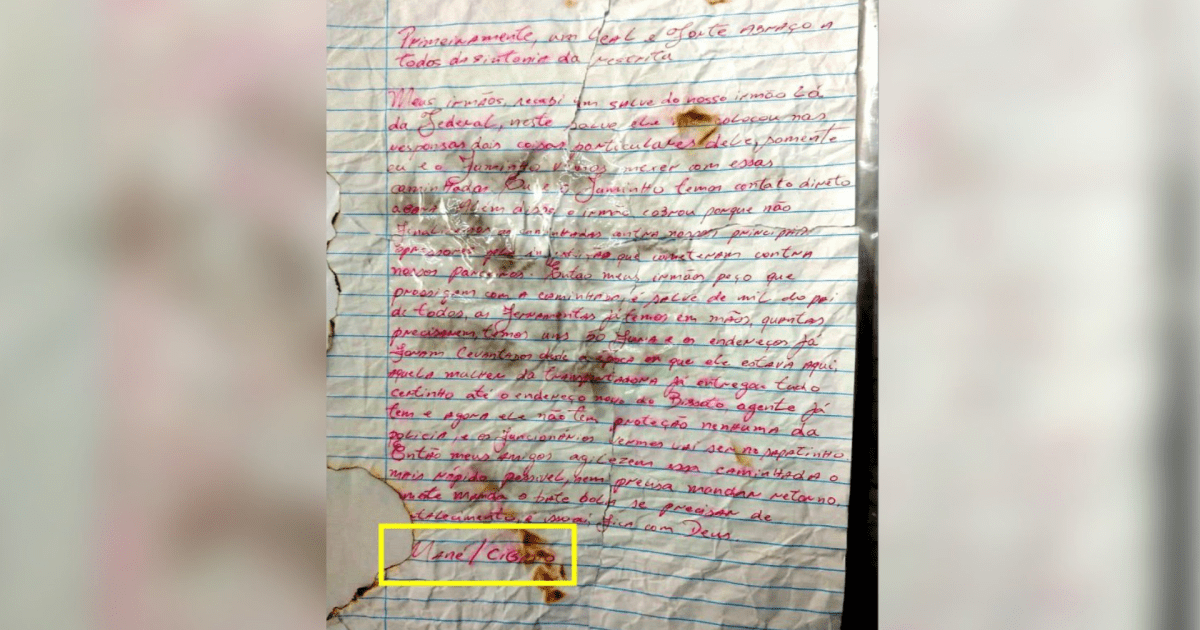 Primeiramente, um leal e forte abraço a
todos da sintonia da restrita
Meus irmãos, recebi um salve do nosso irmão Lá
da Federal, neste salve ele colocou nas
responsas dois coisas particulares dele, somente
eu e o Juninho vamos mexer com essas
caminhadas. Eu e o Juninho temos contato direto
agora. Além disso o irmão cobrou porque não
as caminhadas contra nossos principais
opressores pela que cometeram contra
nossos parceiros. Então meus irmãos peço que
prossigam com a caminhada, é salve de mil do pai
de todos, as ferramentas já temos em mãos, quantas
precisarem, temos uns 50 fura e os endereços já
foram levantados desde a época em que ele estava aqui,
aquela mulher da transportadora já entregou tudo
certinho até o endereço novo do agente já
tem e agora ele não tem proteção nenhuma da
policia, e os funcionários vermos vai ser no sapatinho
Então meus amigos agilezem essa caminhada o
mais rápido possivel, nem precisa mandar retorno,
manda o bate bola se precisar de
é fica com Deus
Mane/